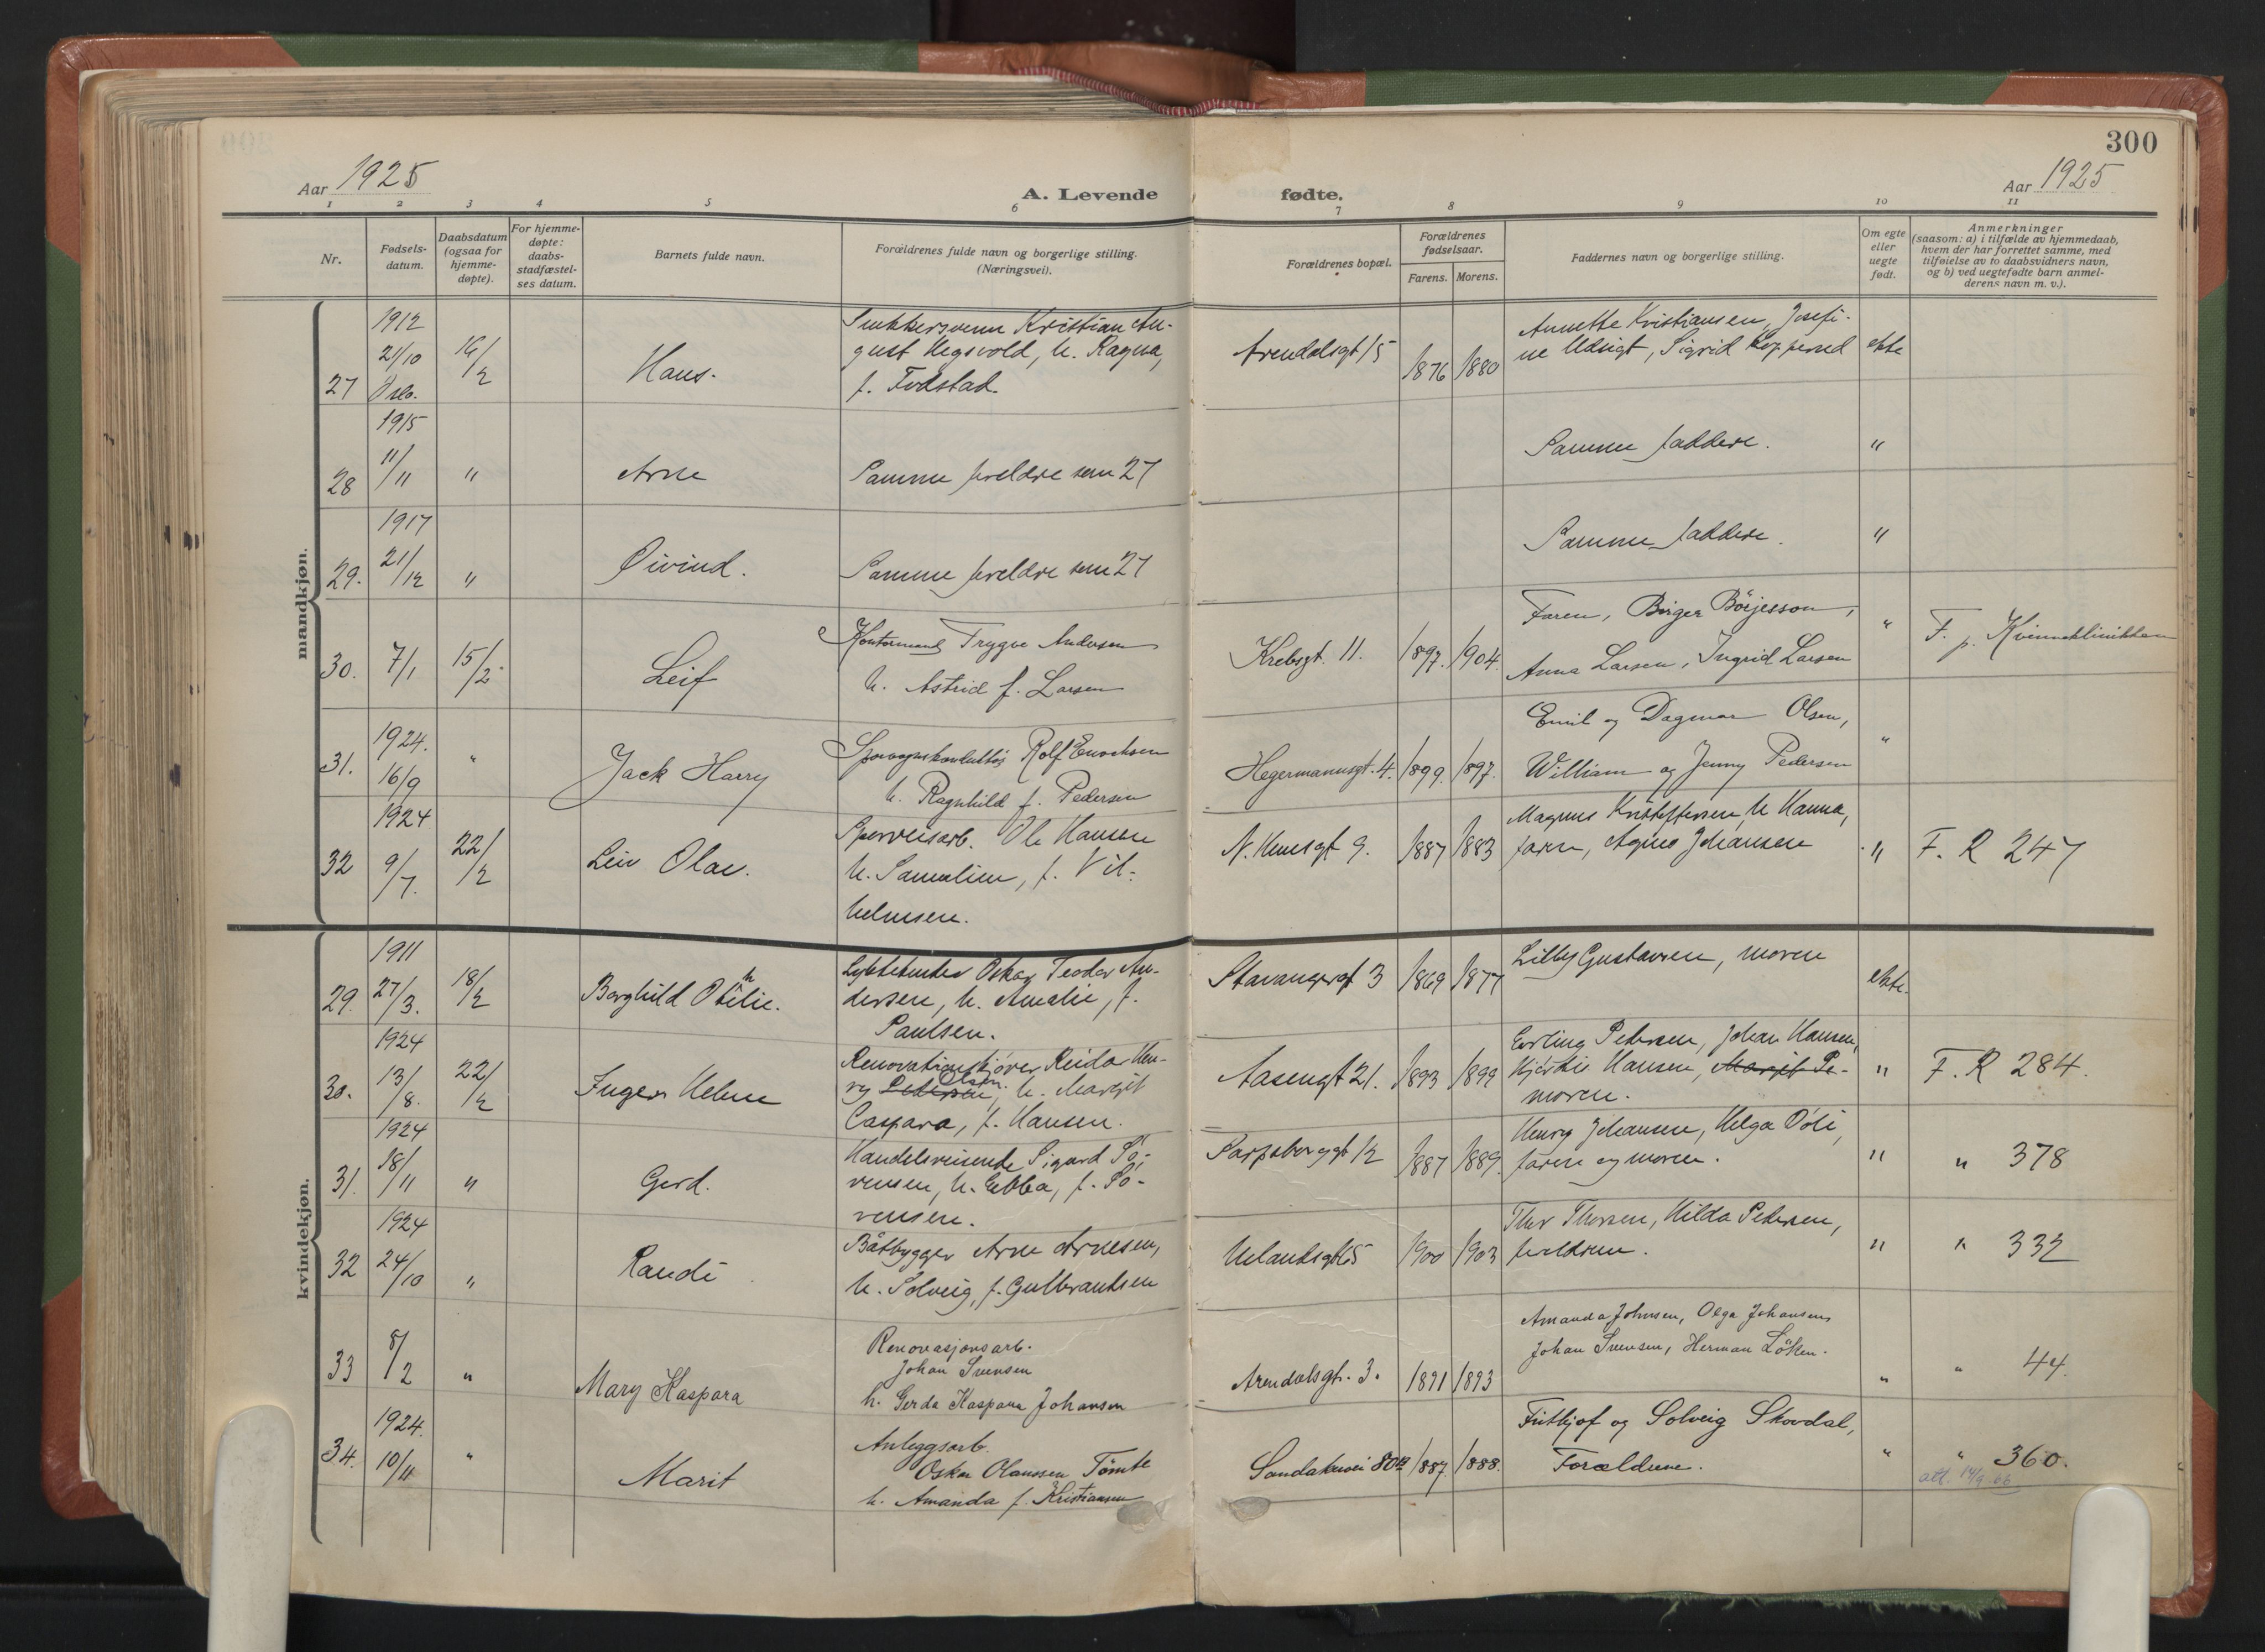 300
Aar 1925
A. Levende fødte.
Aar 1925
1 2 3 4 5 6 7 8 9 10 11
Nr.
Fødsels-
datum.
Daabsdatum
(ogsaa for
hjemme-
døpte).
For hjemme-
døpte:
daabs-
stadfæstel-
ses datum.
Barnets fulde navn.
Forældrenes fulde navn og borgerlige stilling.
(Næringsvei).
Forældrenes bopæl.
Forældrenes
fødselsaar.
Farens. Morens.
Faddernes navn og borgerlige stilling.
Om egte
eller
uegte
født.
Anmerkninger
(saasom: a) i tilfælde av hjemmedaab,
hvem der har forrettet samme, med
tilføielse av to daabsvidners navn,
og b) ved uegtefødte barn anmel-
derens navn m. v.).
mandkjøn.
27
1912
21/10
Oslo.
Hans.
Kristian Au-
gust, h. Ragna,
f.
Arendalsgt 15
1876 1880
Annette Kristiansen, Josefi-
ne Udsigt, Sigrid
ekte
28
1915
11/11
"
Arne
Samme foreldre som 27
Samme faddere.
"
29.
1917
21/12
"
Øivind.
Samme foreldre som 27
Samme faddere.
"
30.
7/1
15/2
Leif
Kontormand Trygve Andersen
h. Astrid f. Larsen
Krebsgt. 11.
1897. 1904.
Faren, Birger Börjesson,
Anna Larsen, Ingrid Larsen
"
F. p. Kvinneklinikken
31.
1924.
16/9
"
Jack Harry
Sporvognskonduktør Rolf Enochsen
h. Ragnhild f. Pedersen
Hegermannsgt. 4.
1899. 1897.
Emil og Dagmar Olsen,
William og Jenny Pedersen
"
32
1924
9/7.
22/2
Leiv Olav.
Sporveisarb. Ole Hansen
h. f. Vil-
helmsen.
1887 1883
Magnus Kristoffersen, h Hanna,
faren, Johansen
"
F. R 247
kvindekjøn.
29.
1911
27/3.
18/2
Borghild Othilie.
Lyktetender Oskar Teodor An-
dersen, h. Amalie, f.
Paulsen.
Stavangergt 3
1869 1877
Lilly Gustavsen, moren
ekte.
30.
1924
13/8.
22/2
Inger Helene
Renovationskjører Reidar Hen-
ry Pettersen Olsen, h. Margit
Caspara, f. Hansen.
Aasengt 21.
1893 1899
Erling Petersen, Johan Hansen,
Hansen, Margit Pe-
moren.
"
F. R 284.
31.
1924
18/11
"
Gerd.
Handelsreisende Sigurd Sö-
rensen, h. Ebba, f. Sö-
rensen.
Sarpsborggt 12
1887 1889.
Henry Johansen, Helga
faren og moren.
"
" 378
32
1924
24/10
"
Randi
Båtbygger Arne Arnesen,
h. Solveig, f. Gulbrandsen
Uelandsgt 65
1900 1903
Thor Thorsen, Hilda Petersen,
foreldrene.
"
" 332
33
8/2
"
Mary Kaspara
Renovasjonsarb.
Johan Svensen
h. Gerda Kaspara Johansen
Arendalsgt. 3.
1891 1893
Amanda Johnsen, Olga Johansen,
Johan Svensen, Herman Löken.
"
" 44.
34.
1924.
10/11
"
Marit
Anleggsarb.
Oskar Olaussen Tömte
h. Amanda f. Kristiansen
Sandakervei 80
1887. 1888.
Fritjof og Solveig Skovdal,
Forældrene.
"
" 360.
att. 14/9 66